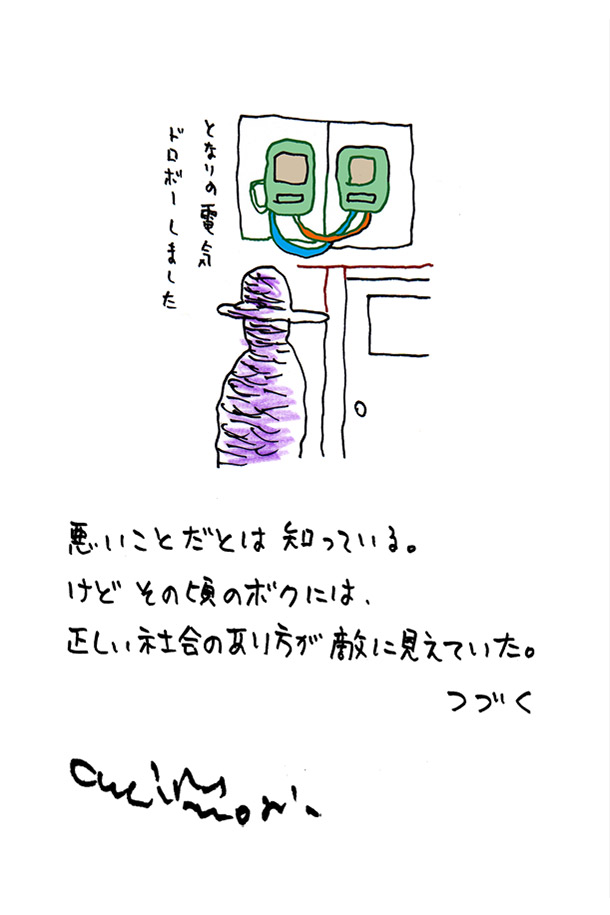 となりの電気
ドロボーしました
悪いことだとは 知っている。
けど その頃のボクには、
正しい社会のあり方が 敵に見えていた。
つづく